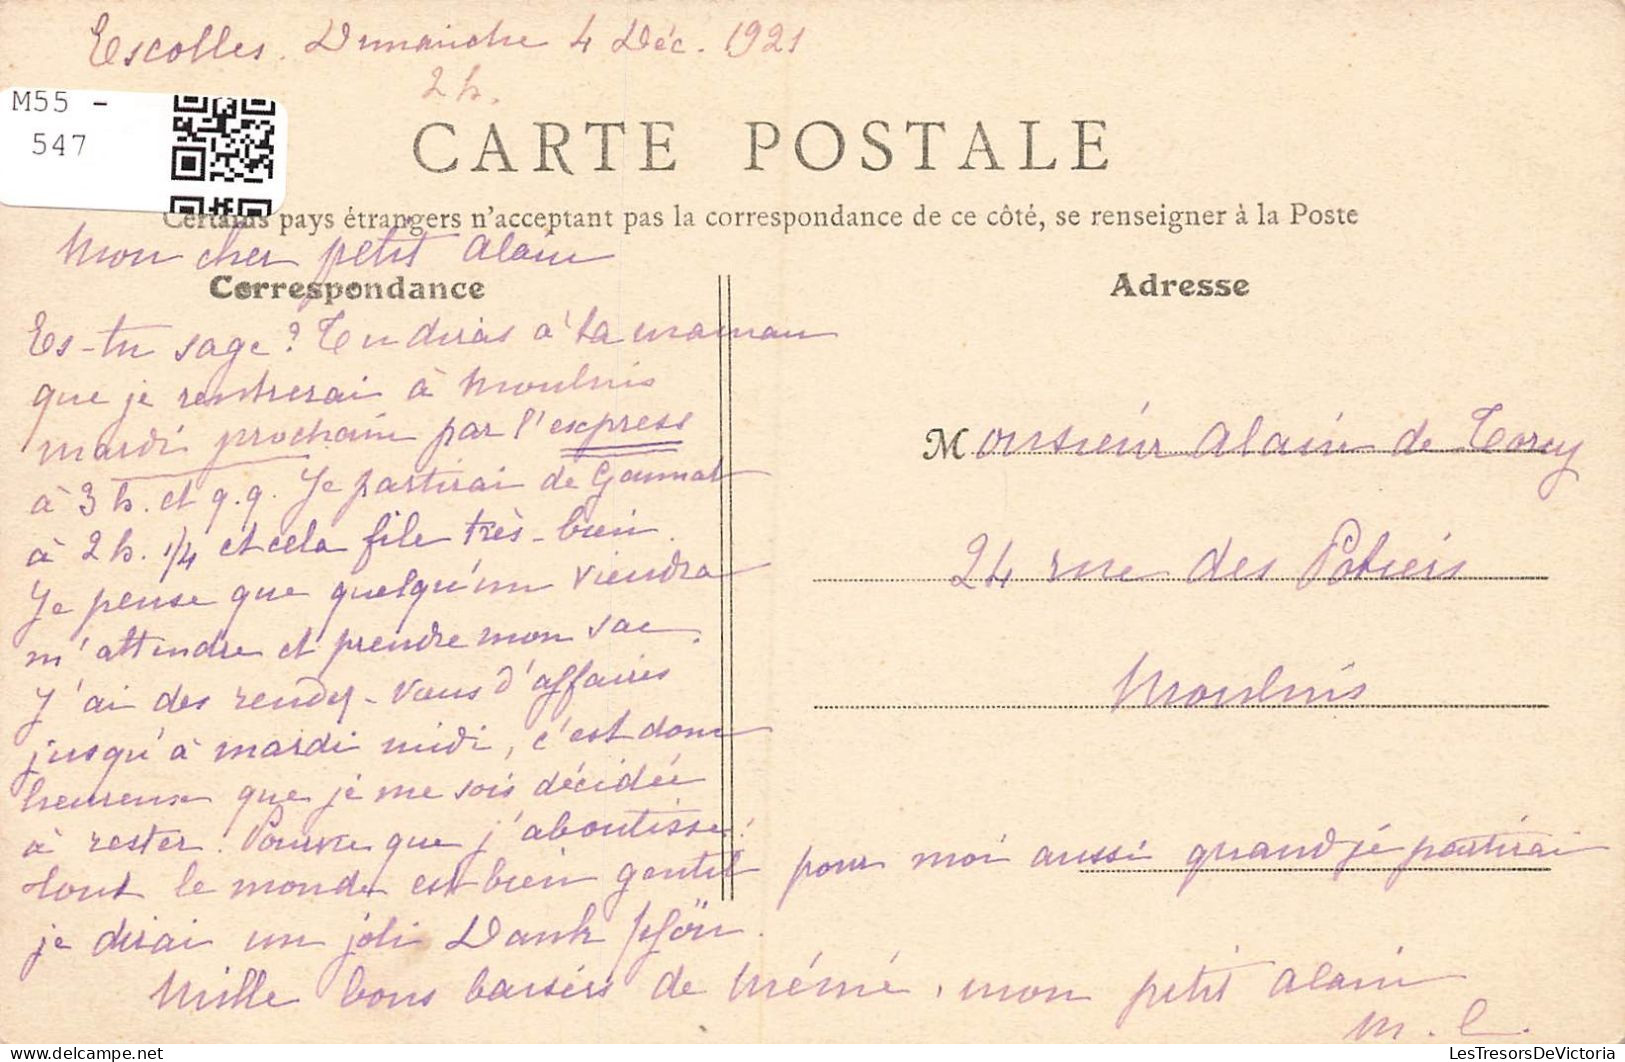 Escolles. Dimanche 4 Déc. 1921
2 h.
M55 -
547
CARTE POSTALE
Certains pays étrangers n'acceptant pas la correspondance de ce côté, se renseigner à la Poste
Mon cher petit Alain
Correspondance
Es-tu sage ? Tu diras à ta maman
que je rentrerai à Moulins
mardi prochain par l'express
à 3 h. et q.q. Je partirai de Gannat
à 2 h. 1/4 et cela file très-bien.
Je pense que quelqu'un viendra
m'attendre et prendre mon sac.
J'ai des rendez-vous d'affaires
jusqu'à mardi midi, c'est donc
heureux que je me sois décidée
à rester. Pourvu que j'aboutisse !
tout le monde est bien gentil pour moi aussi quand je partirai
je dirai un joli Dank
Mille bons baisers de Mémé, mon petit Alain
M. C.
Adresse
Monsieur Alain de Torcy
24 rue des Potiers
Moulins
LesTresorsDeVictoria